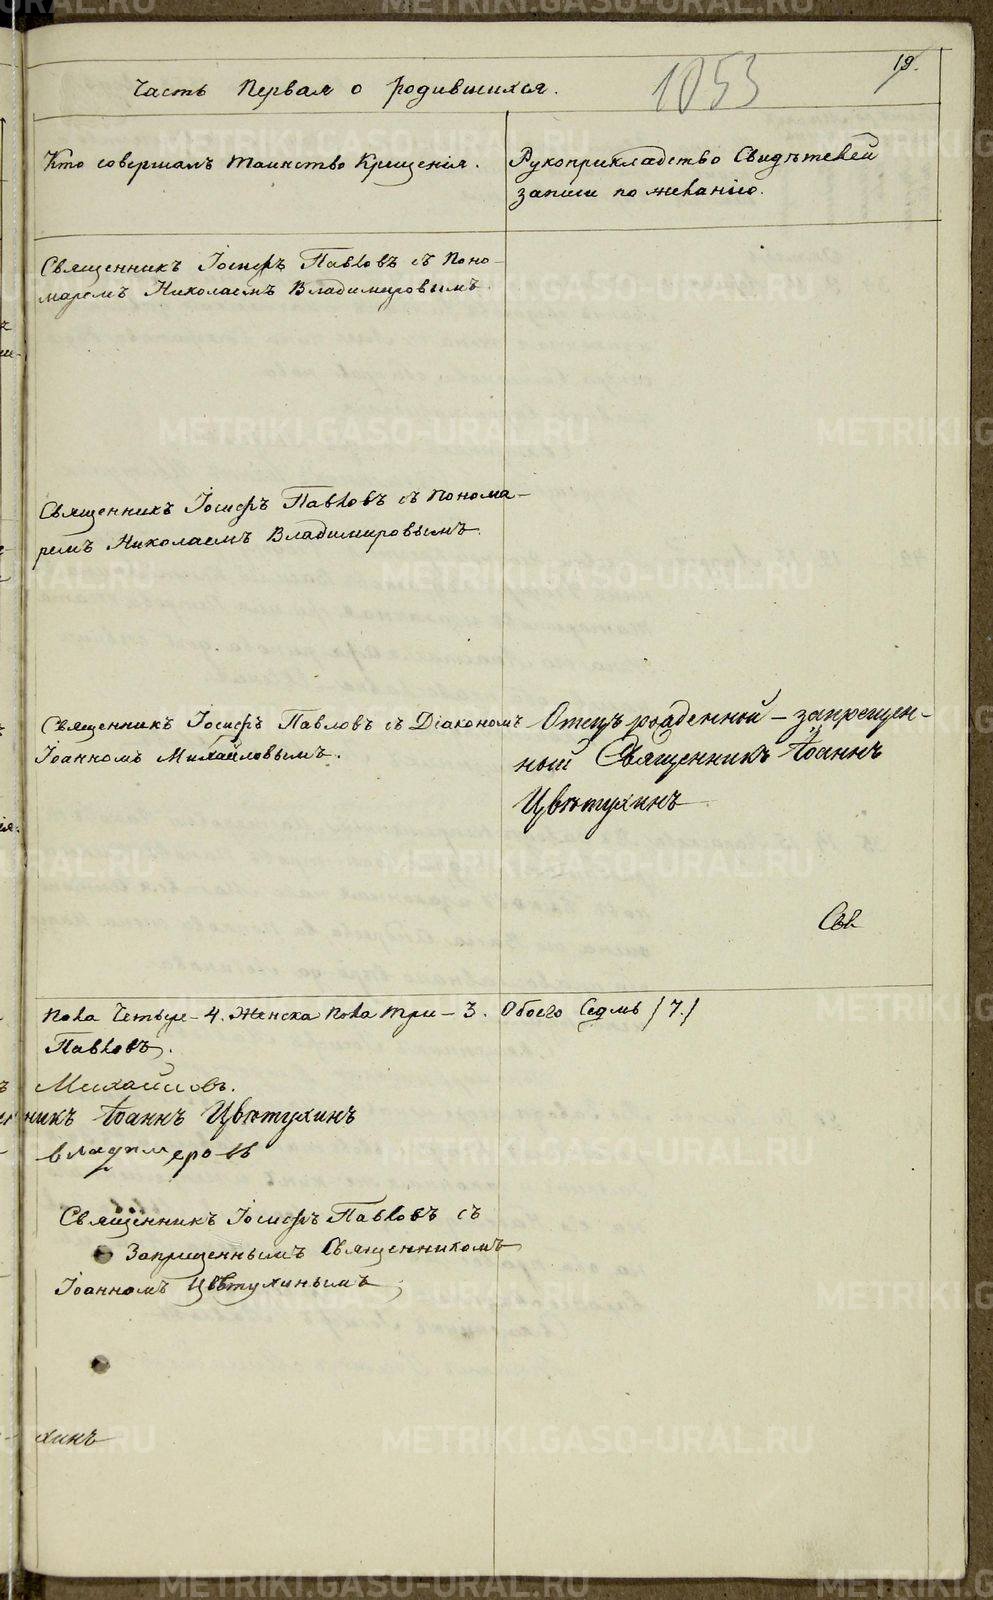 19.
1053
Часть Первая о родившихся.
Кто совершалъ таинство Крещенія.
Рукоприкладство Свидѣтелей
записи по желанію.
Священникъ Іосифъ Павловъ съ Поно-
маремъ Николаемъ Владимировымъ.
Священникъ Іосифъ Павловъ съ Понома-
ремъ Николаемъ Владимировымъ.
Священникъ Іосифъ Павловъ съ Діакономъ
Іоанномъ Михайловымъ.
Отецъ рожденной – запрещен-
ный Священникъ Іоаннъ
Цвѣтухинъ
Свя
пола Четыре – 4. Женска пола три – 3. Обоего Седмь /7./
Павловъ.
Михайловъ.
никъ Іоаннъ Цвѣтухинъ
владимеровъ
Священникъ Іосифъ Павловъ съ
Запрещеннымъ Священникомъ
Іоанномъ Цвѣтухинымъ
хинъ
METRIKI.GASO-URAL.RU